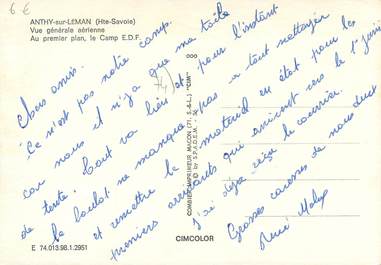 6 €
ANTHY-sur-LEMAN (Hte-Savoie)
Vue générale aérienne
Au premier plan, le Camp E.D.F.
Chers amis.
"Ce n'est pas notre camp.
car nous il n'y a que ma toile
de tente. Tout va bien et pour l'instant
le boulot ne manque pas - a tout nettoyer
et remettre le matériel en état pour les
premiers arrivants qui arrivent vers le 1er juin
J'ai déjà reçu le courrier.
Grosses caresses de nous deux
René
COMBIER IMPRIMEUR MACON (71, S.-&-L.) "CIM"
E 74.013.98.1.2951
CIMCOLOR